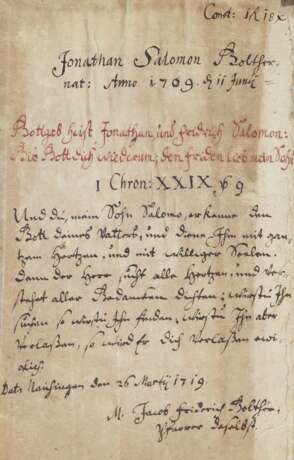 Const: 1 fl 18 x
Jonathan Salomon Bolther
nat: Anno 1709. d 11 Junij
Gottgeb heist Jonathan, und fridrich Salomon:
Gib Gott dich wiederum; den frieden lieb mein Sohn
I Chron: XXIX, v 9
Und du, mein Sohn Salomo, erkenne den
Gott deines Vatters, und diene Ihm mit gan-
tzem Hertzen, und mit williger Seelen.
Denn der Herr sucht alle Hertzen, und ver-
stehet aller Gedancken dichten; wirstu Ihn
suchen so wirstu Ihn finden, wirstu Ihn aber
verlaßen, so wird er dich verlaßen ewi-
glich.
Dat: den 26 Martij 1719.
M. Jacob Friderich Bolther,
Pfarrer daselbst.